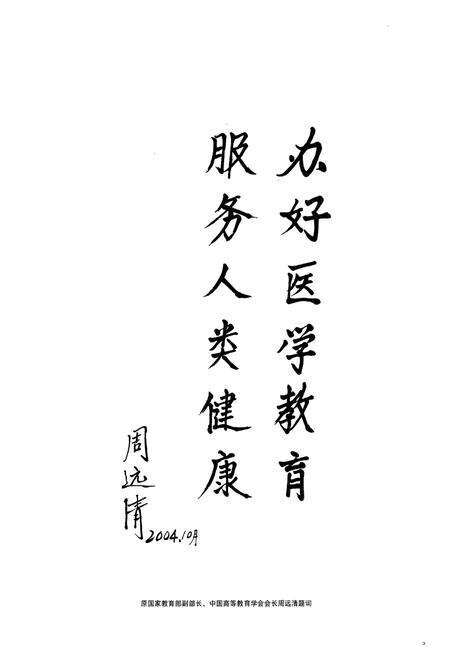 办好医学教育
服务人类健康
周远清
2004.10月
原国家教育部副部长、中国高等教育学会会长周远清题词